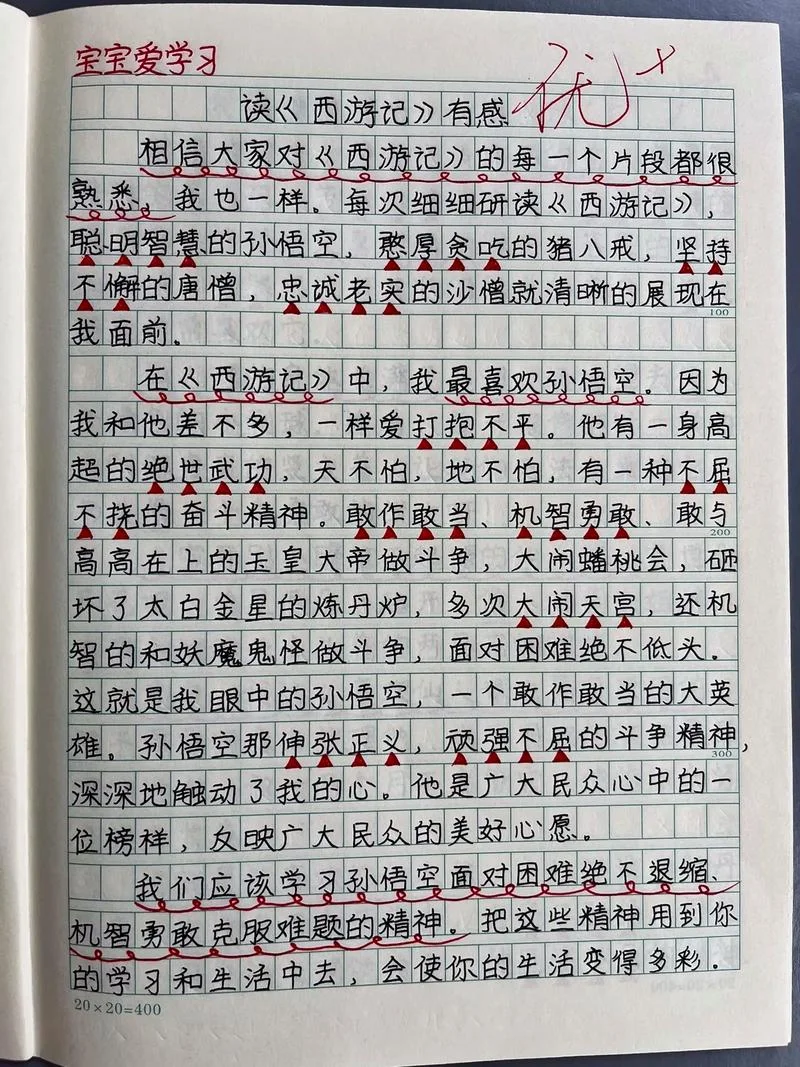 宝宝爱学习
优+
读《西游记》有感
相信大家对《西游记》的每一个片段都很
熟悉。我也一样。每次细细研读《西游记》，
聪明智慧的孙悟空，憨厚贪吃的猪八戒，坚持
不懈的唐僧，忠诚老实的沙僧就清晰的展现在
100
我面前。
在《西游记》中，我最喜欢孙悟空。因为
我和他差不多，一样爱打抱不平。他有一身高
超的绝世武功，天不怕，地不怕，有一种不屈
不挠的奋斗精神。敢作敢当、机智勇敢、敢与
200
高高在上的玉皇大帝做斗争，大闹蟠桃会，砸
坏了太白金星的炼丹炉，多次大闹天宫，还机
智的和妖魔鬼怪做斗争，面对困难绝不低头。
这就是我眼中的孙悟空，一个敢作敢当的大英
雄。孙悟空那伸张正义，顽强不屈的斗争精神，
300
深深地触动了我的心。他是广大民众心中的一
位榜样，反映广大民众的美好心愿。
我们应该学习孙悟空面对困难绝不退缩、
机智勇敢克服难题的精神。把这些精神用到你
的学习和生活中去，会使你的生活变得多彩。
20×20=400